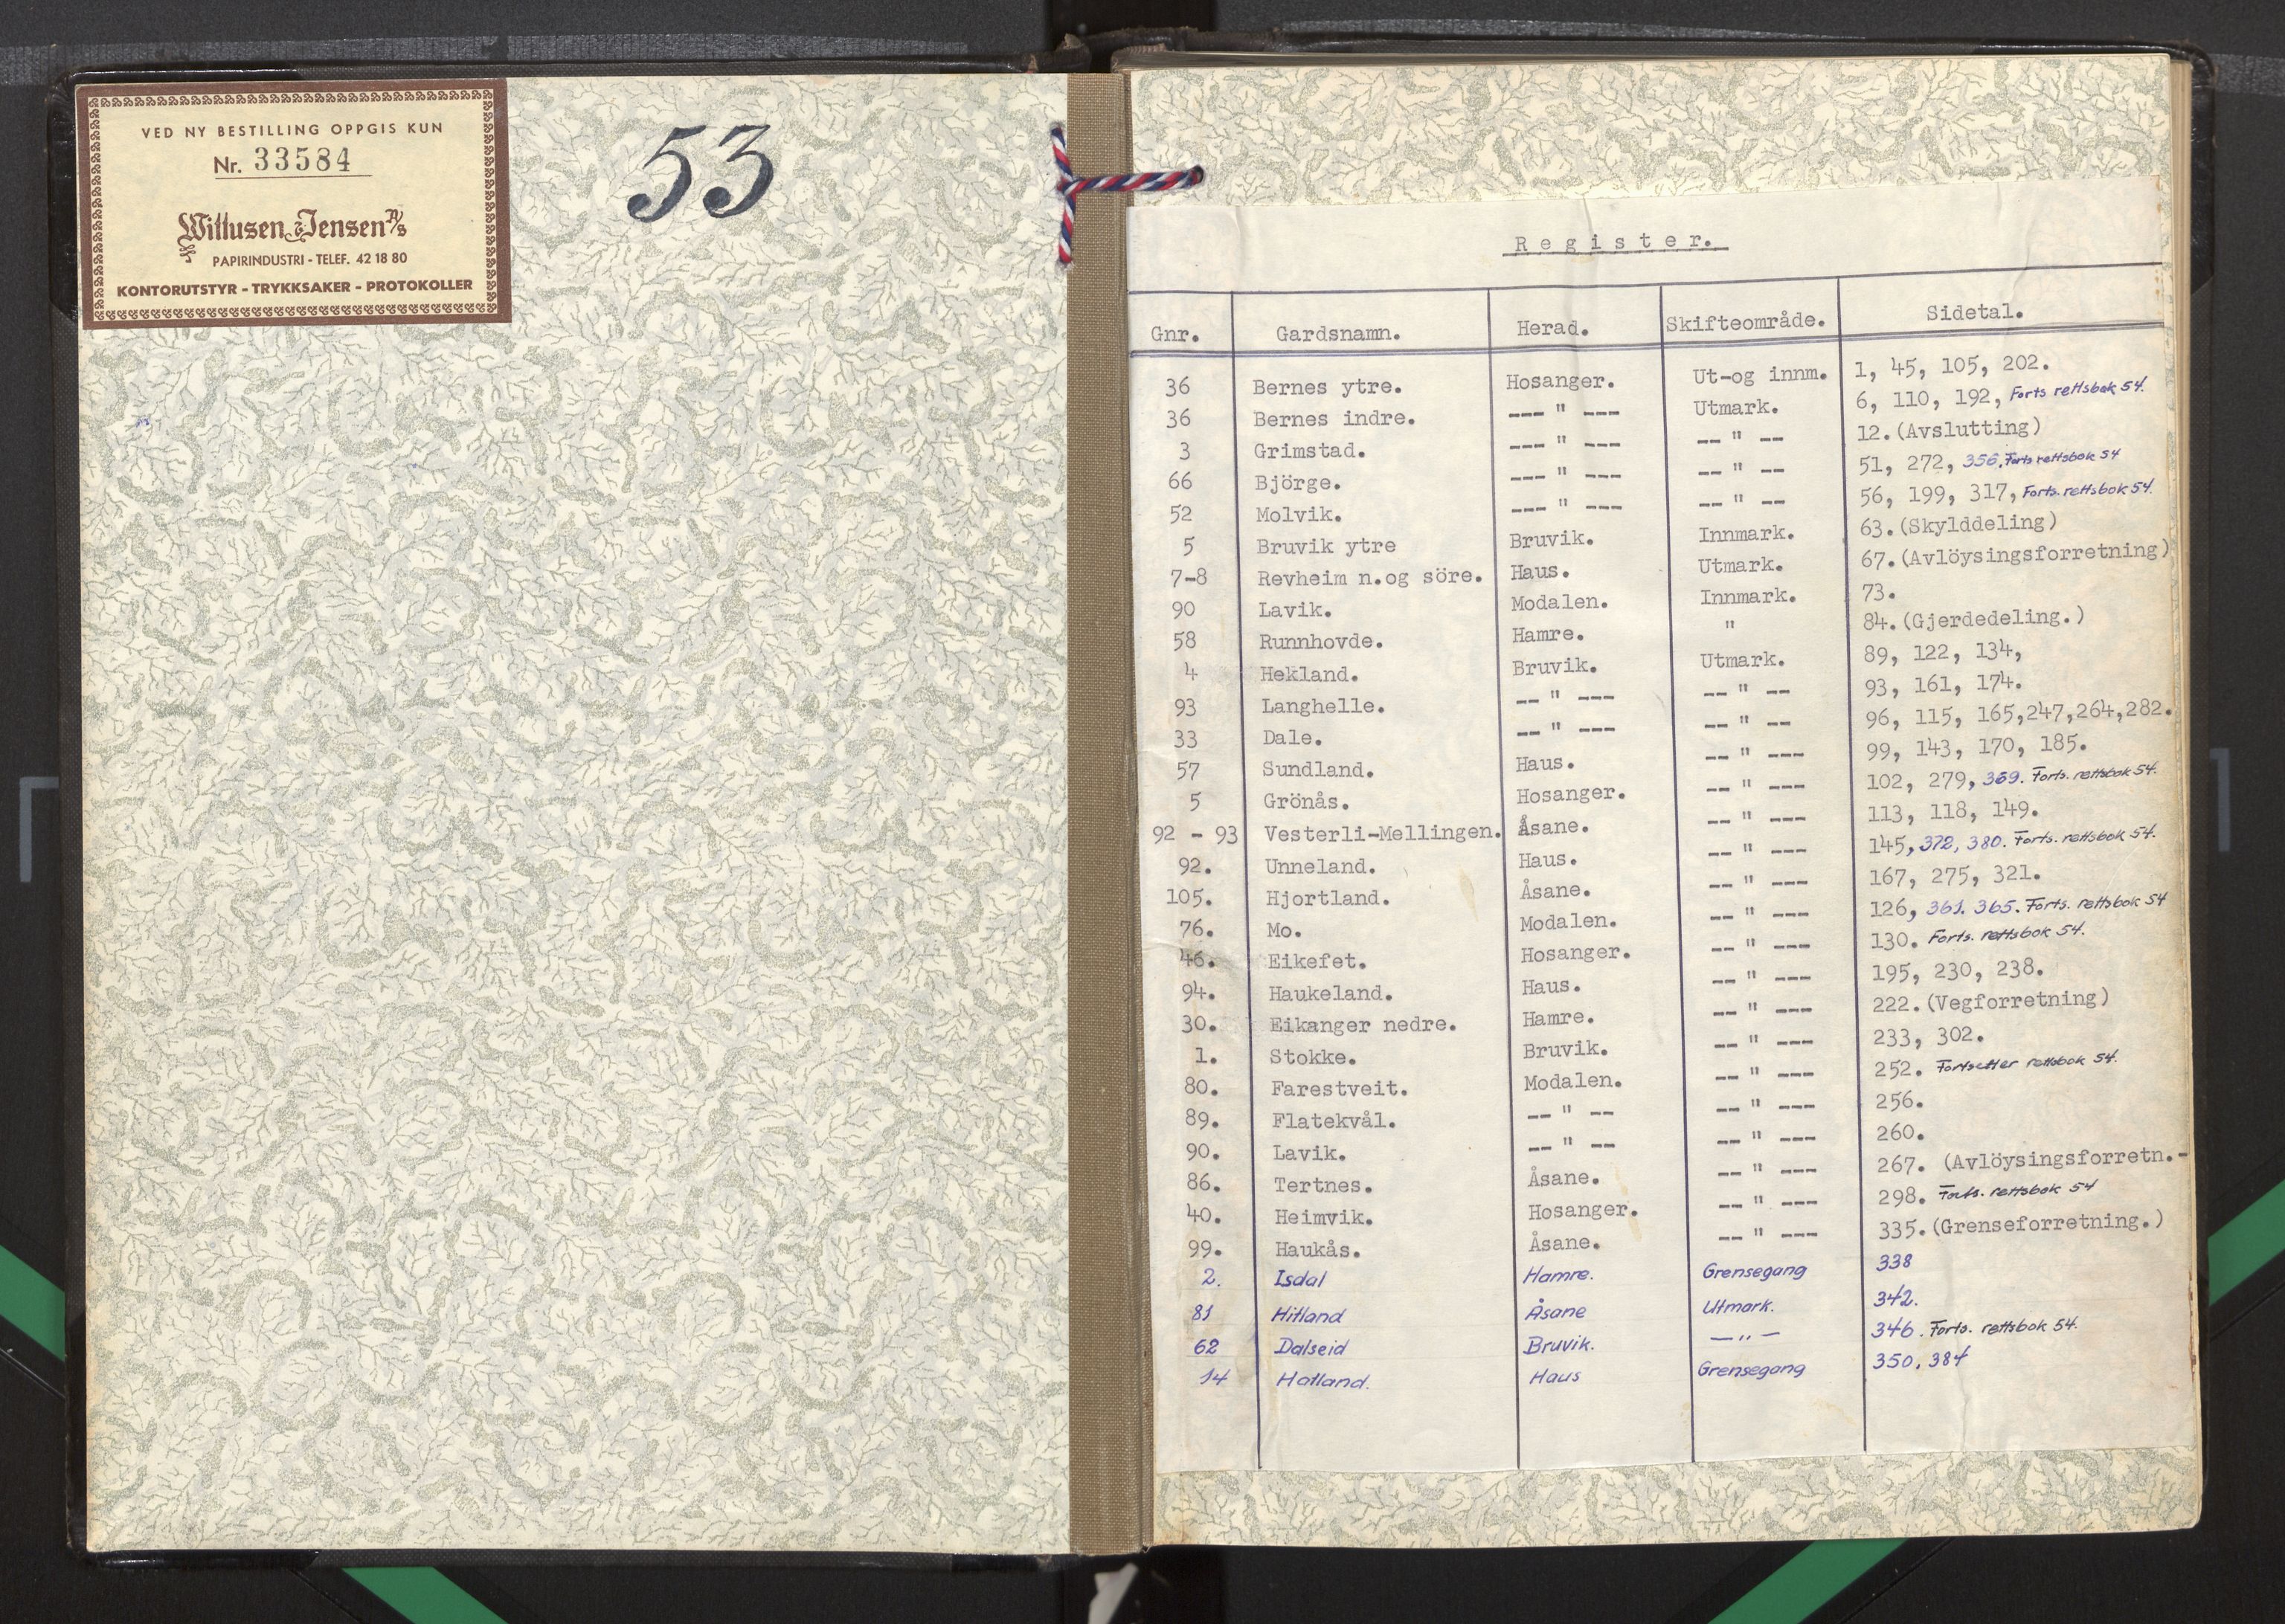 VED NY BESTILLING OPPGIS KUN
Nr. 33584
Wittusen & Jensen A/S
PAPIRINDUSTRI - TELEF. 42 18 80
KONTORUTSTYR - TRYKKSAKER - PROTOKOLLER
53
Register.
Gnr. Gardsnamn. Herad. Skifteområde. Sidetal.
36 Bernes ytre. Hosanger. Ut-og innm. 1, 45, 105, 202.
36 Bernes indre. --- " --- Utmark. 6, 110, 192, Forts rettsbok 54.
3 Grimstad. --- " --- -- " -- 12.(Avslutting)
66 Björge. --- " --- -- " -- 51, 272, 356. Forts rettsbok 54
52 Molvik. --- " --- -- " -- 56, 199, 317, Forts. rettsbok 54.
5 Bruvik ytre Bruvik. Innmark. 63.(Skylddeling)
7-8 Revheim n.og söre. Haus. Utmark. 67.(Avlöysingsforretning)
90 Lavik. Modalen. Innmark. 73.
58 Runnhovde. Hamre. " 84.(Gjerdedeling.)
4 Hekland. Bruvik. Utmark. 89, 122, 134,
93 Langhelle. -- " --- -- " -- 93, 161, 174.
33 Dale. -- " --- -- " -- 96, 115, 165,247,264,282.
57 Sundland. Haus. -- " --- 99, 143, 170, 185.
5 Grönås. Hosanger. -- " --- 102, 279, 369. Forts. rettsbok 54.
92 - 93 Vesterli-Mellingen. Åsane. -- " --- 113, 118, 149.
92. Unneland. Haus. -- " --- 145, 372, 380. Forts. rettsbok 54.
105. Hjortland. Åsane. -- " --- 167, 275, 321.
76. Mo. Modalen. -- " --- 126, 361. 365. Forts. rettsbok 54
46. Eikefet. Hosanger. -- " --- 130. Forts. rettsbok 54.
94. Haukeland. Haus. -- " --- 195, 230, 238.
30. Eikanger nedre. Hamre. -- " --- 222.(Vegforretning)
1. Stokke. Bruvik. -- " --- 233, 302.
80. Farestveit. Modalen. -- " --- 252. Fortsetter rettsbok 54.
89. Flatekvål. -- " -- -- " --- 256.
90. Lavik. -- " -- -- " --- 260.
86. Tertnes. Åsane. -- " --- 267. (Avlöysingsforretn.-
40. Heimvik. Hosanger. -- " --- 298. Forts. rettsbok 54
99. Haukås. Åsane. -- " --- 335.(Grenseforretning.)
2. Isdal Hamre. Grensegang 338
81 Hitland Åsane Utmark. 342.
62 Dalseid Bruvik. — " — 346. Forts. rettsbok 54.
14 Hatland. Haus Grensegang 350, 384